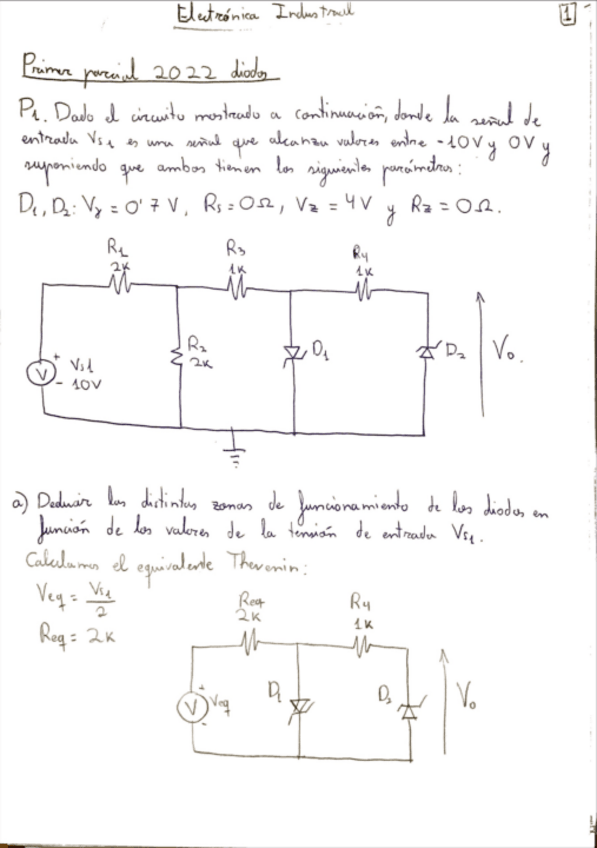 Electrónica Industrial
1
Primer parcial 2022 diodos
P1. Dado el circuito mostrado a continuación, donde la señal de
entrada Vs1 es una señal que alcanza valores entre -10V y 0V y
suponiendo que ambos tienen los siguientes parámetros:
D1, D2: Vγ = 0'7 V, Rs = 0Ω, Vz = 4V y Rz = 0Ω.
R1
2K
R3
1K
R4
1K
R2
2K
D1
D2
Vo.
V
+
-
Vs1
10V
a) Deducir las distintas zonas de funcionamiento de los diodos en
función de los valores de la tensión de entrada Vs1.
Calculamos el equivalente Thevenin:
Veq = Vs1/2
Req = 2K
Req
2K
R4
1K
V
+
-
Veq
D1
D2
Vo